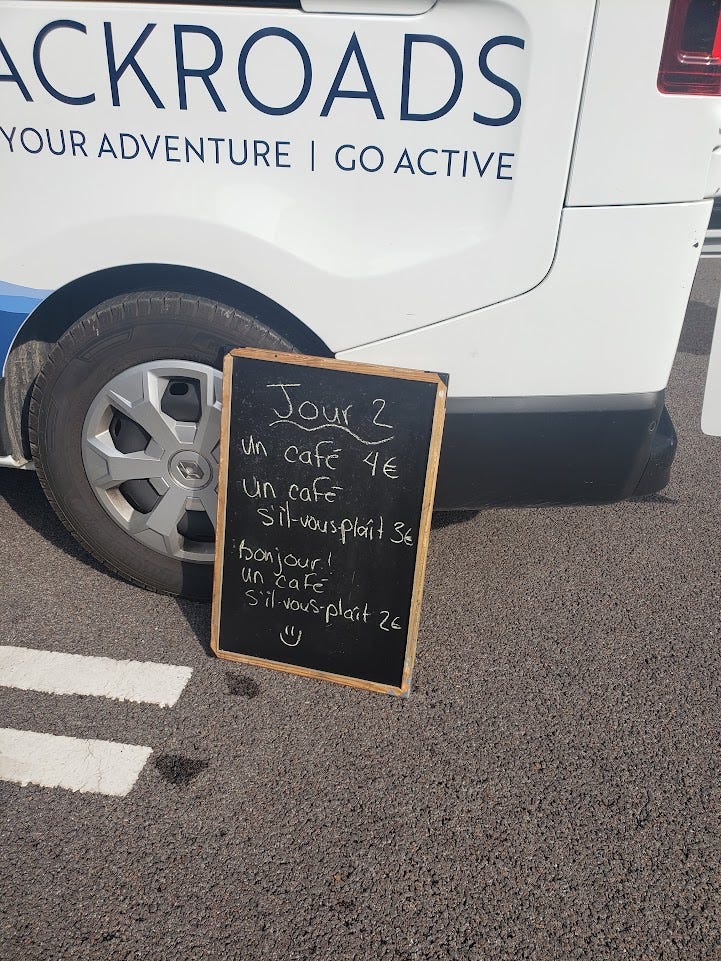 ACKROADS
YOUR ADVENTURE | GO ACTIVE
Jour 2
un café 4€
un café
s'il-vous-plaît 3€
Bonjour!
un café
s'il-vous-plaît 2€